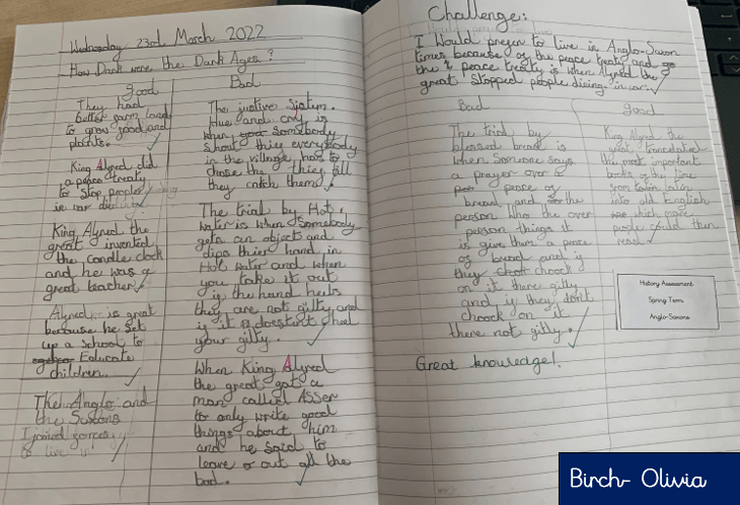 Wednesday 23rd March 2022
How Dark were the Dark Ages?
Good
They had
better farm land
to grow food and
plants.
King Alfred did
a peace treaty
to stop people
in war
King Alfred the
great invented
the candle clock
and he was a
great teacher.
Alfred is great
because he set
up a school to
Educate
children.
The Anglo and
the Saxons
joined forces
to live
Bad
The justive System.
Hue and cry is
when somebody
shout thief everybody
in the village has to
chase the thief till
they catch them.
The trial by Hot
water is when Somebody
gets an object and
dips thier hand in
Hot water and when
you take it out
if the hand heals
they are not gilty and
if it doesent heal
your gilty.
When King Alfred
the great got a
man called Asser
to only write good
things about him
and he said to
leave out all the
bad.
Challenge:
I Would prefer to live in Anglo-Saxon
times because of the peace treaty and
the peace treaty is when Alfred the
great Stopped people dieing in war.
Bad
The trial by
blessed bread is
when Someone says
a prayer over a
peace of
bread and the
person who the over
person things it
is give them a peace
of bread and if
they choock
on it there gilty
and if they don't
choock on it
there not gilty.
Good
King Alfred the
great
the most important
books of the time
from latin
into old English
which more
people could then
read
History Assessment
Spring Term
Anglo-Saxons
Great knowledge!
Birch- Olivia